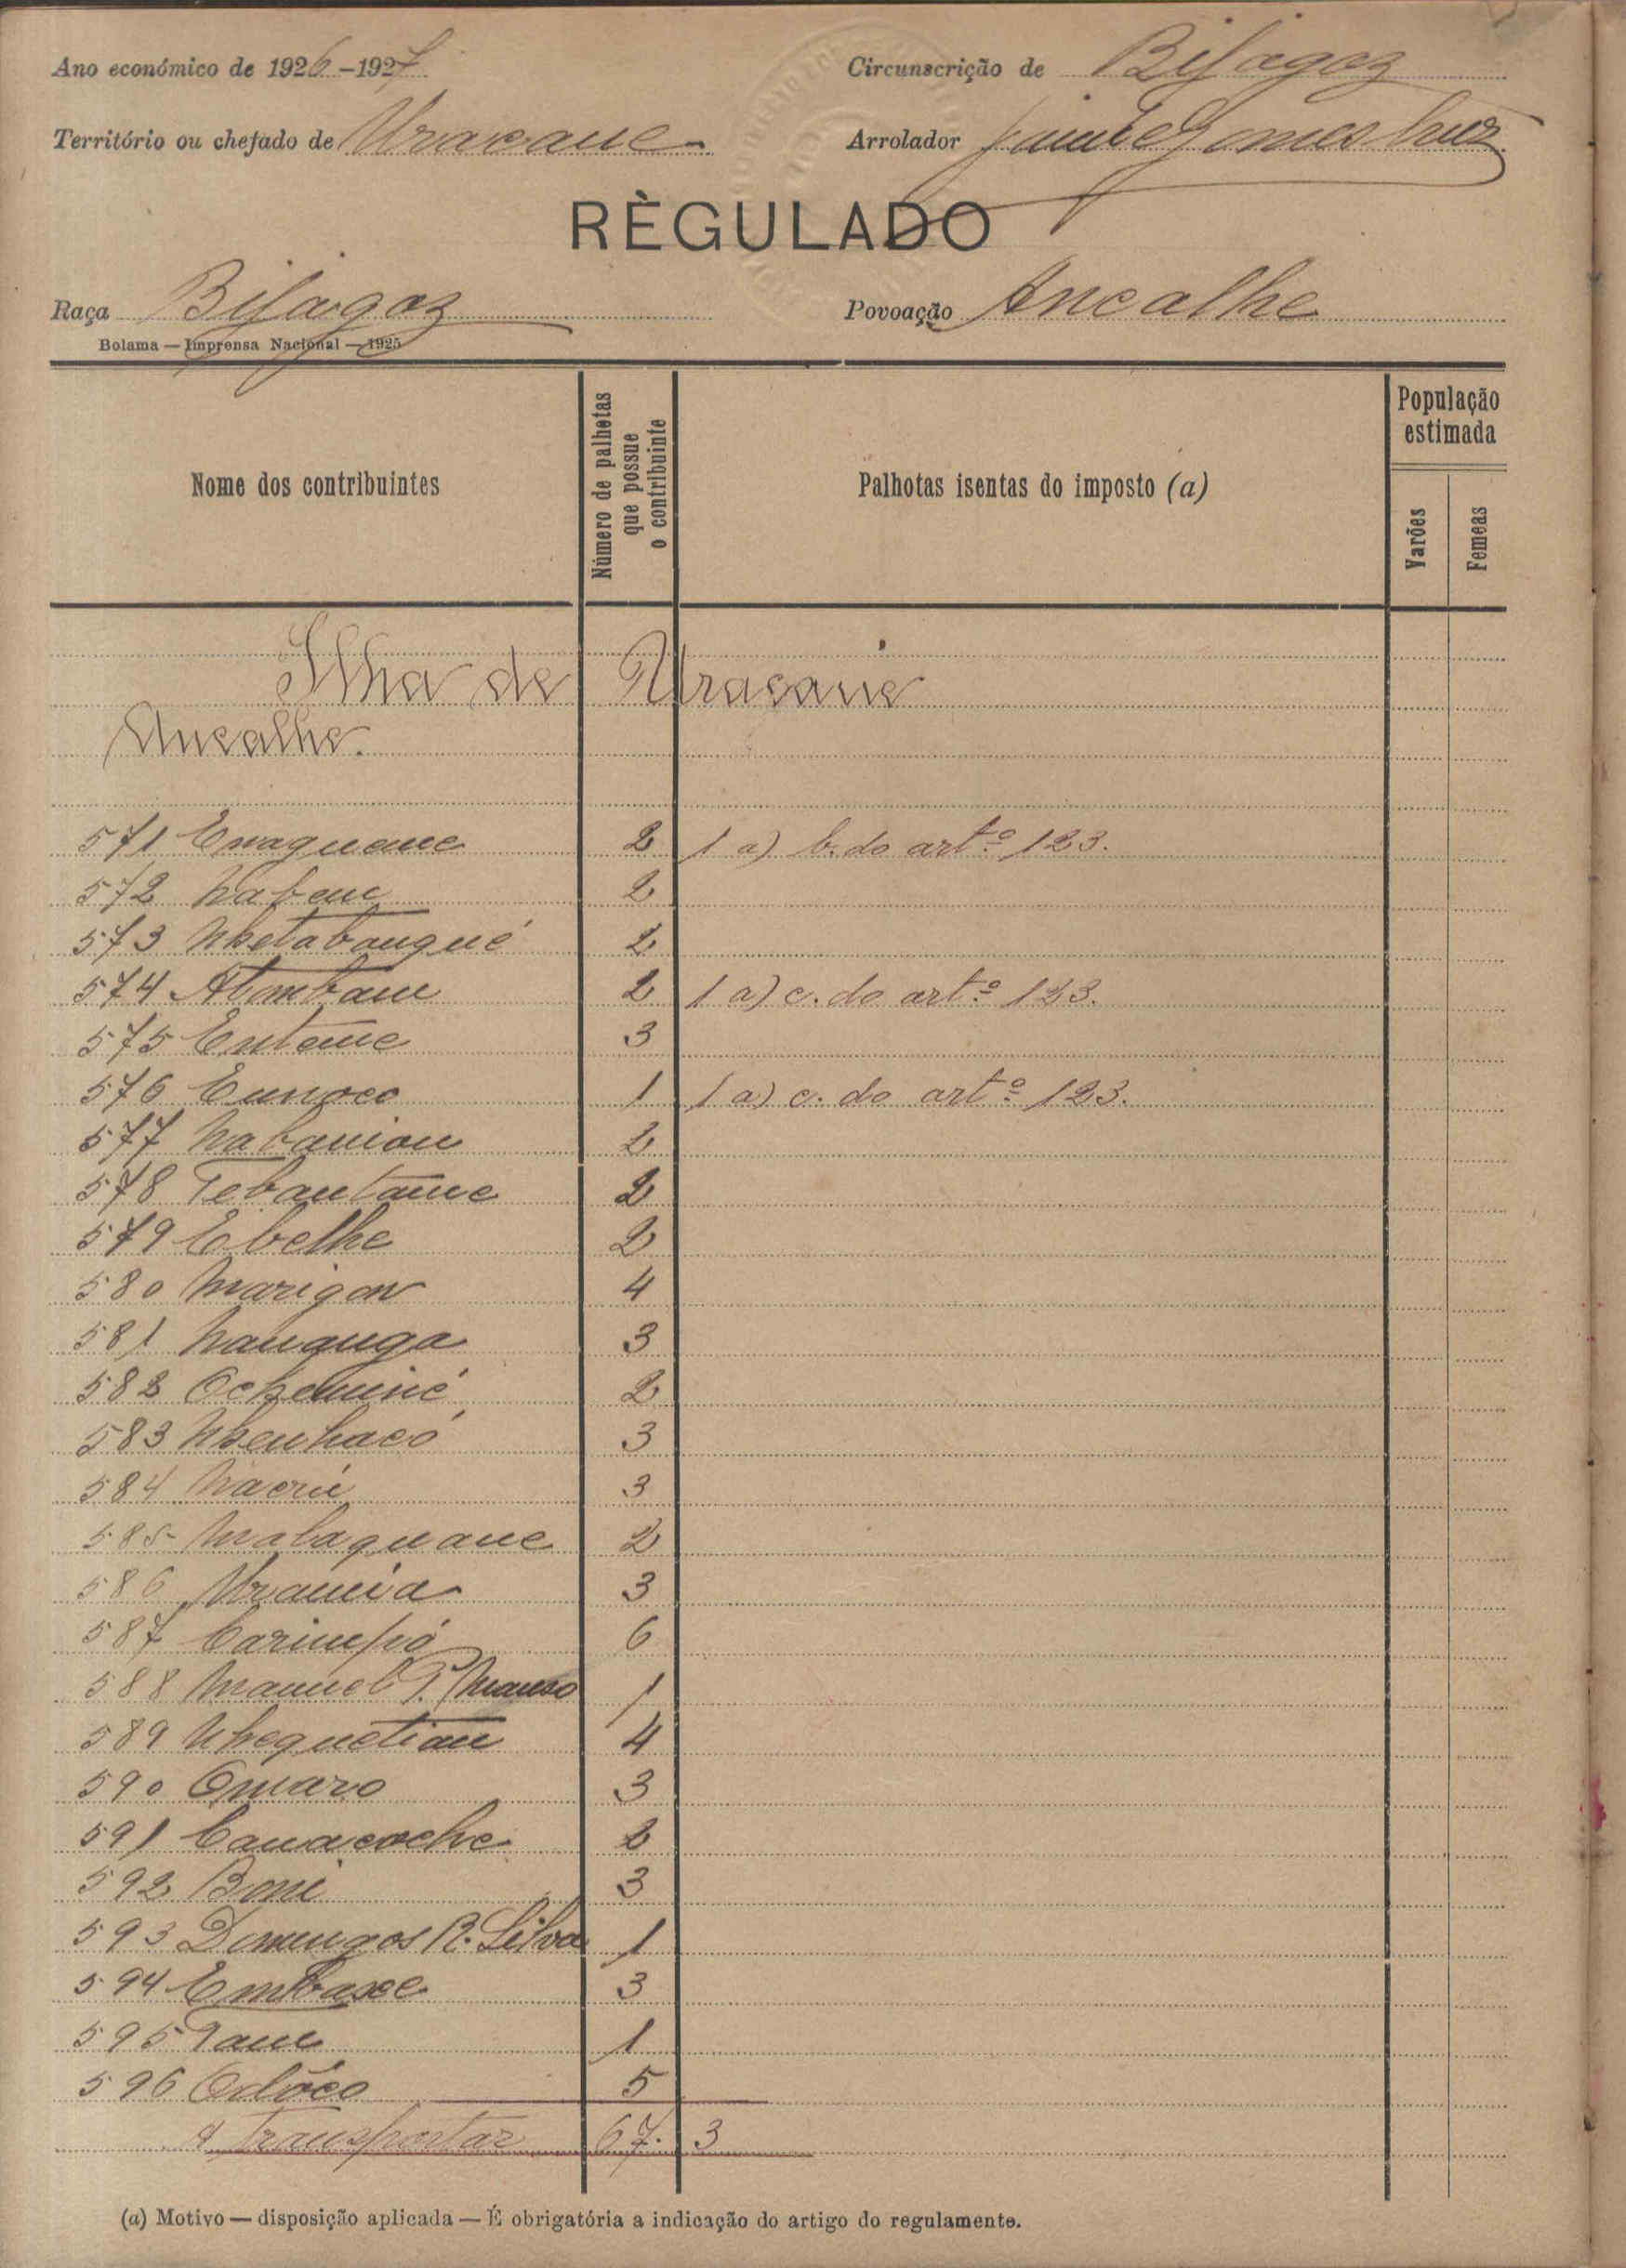 Ano económico de 1926-1927 Circunscrição de Bijagoz
Território ou chefado de Uracane Arrolador Gomes
RÈGULADO
Raça Bijagoz Povoação Ancalhe
Bolama — Imprensa Nacional — 1925
Nome dos contribuintes Número de palhotas que possue o contribuinte Palhotas isentas do imposto (a) População estimada
Varões Femeas
Ilha de Uracane
Ancalhe.
571 Enaquene 2 1 a) b. do artº 123.
572 2
573 2
574 Atombane 2 1 a) c. do artº 123.
575 Entome 3
576 1 1 a) c. do artº 123.
577 2
578 Tebantame 2
579 Ebelhe 2
580 Marigon 4
581 3
582 2
583 3
584 3
585 Malaquane 2
586 Urania 3
587 6
588 Manuel P. 1
589 4
590 Omaro 3
591 Canacoche 2
592 Boni 3
593 Domingos R. Silva 1
594 Embaxe 3
595 1
596 Odôco 5
A Transportar 67. 3
(a) Motivo — disposição aplicada — É obrigatória a indicação do artigo do regulamento.